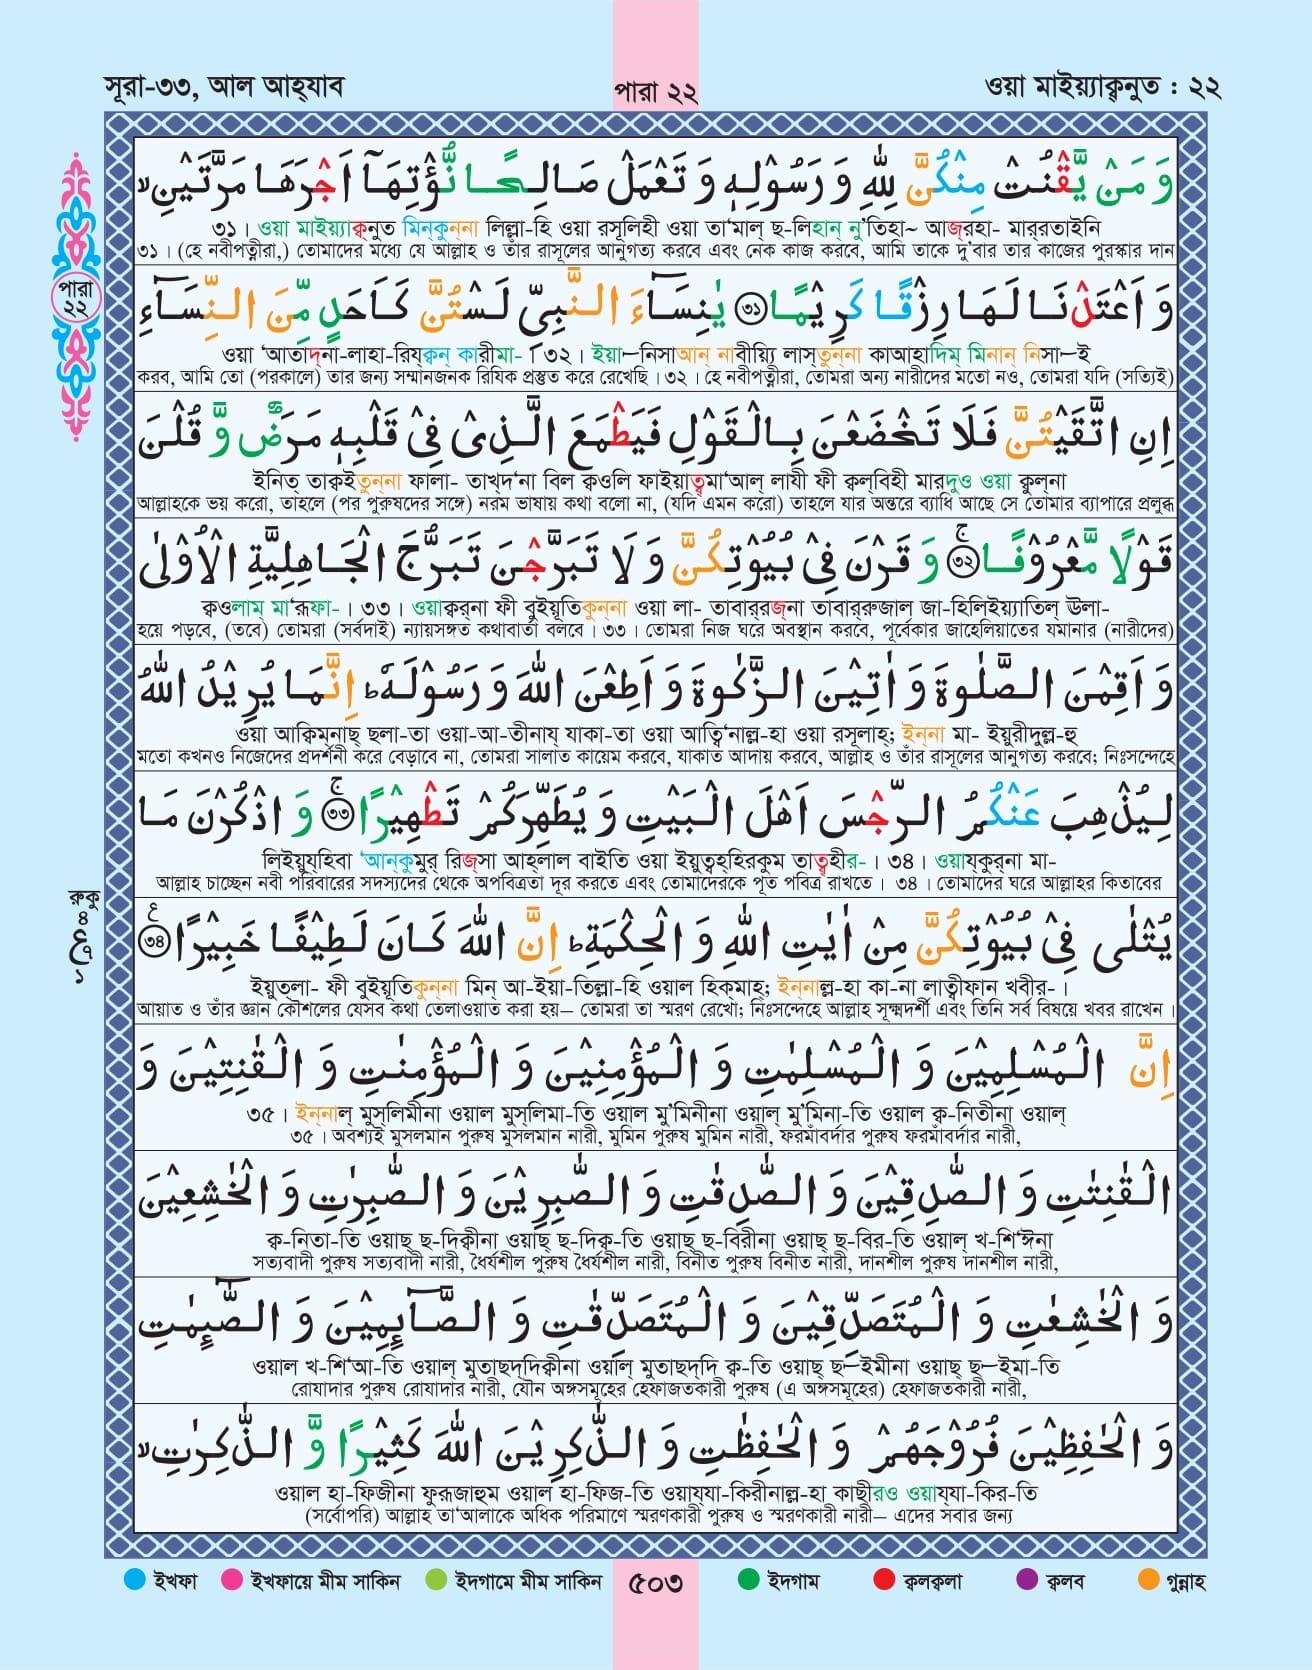 সূরা-৩৩, আল আহ্‌যাব
পারা ২২
ওয়া মাইয়্যাক্বনুত : ২২
পারা
২২
وَ مَنْ يَّقْنُتْ مِنْكُنَّ لِلّٰهِ وَ رَسُوْلِهٖ وَ تَعْمَلْ صَالِحًا نُّؤْتِهَآ اَجْرَهَا مَرَّتَيْنِ ۙ
৩১। ওয়া মাইয়্যাক্বনুত মিন্‌কুন্‌না লিল্লা-হি ওয়া রসূলিহী ওয়া তা‘মাল্ ছ-লিহান্ নু’তিহা~ আজ্‌রহা- মার্‌রতাইনি
৩১। (হে নবীপত্নীরা,) তোমাদের মধ্যে যে আল্লাহ ও তাঁর রাসূলের আনুগত্য করবে এবং নেক কাজ করবে, আমি তাকে দু’বার তার কাজের পুরস্কার দান
وَ اَعْتَدْنَا لَهَا رِزْقًا كَرِيْمًا ۝৩১ يٰنِسَآءَ النَّبِىِّ لَسْتُنَّ كَاَحَدٍ مِّنَ النِّسَآءِ
ওয়া ‘আতাদ্‌না-লাহা-রিয্‌ক্বন্ কারীমা-। ৩২। ইয়া–নিসাআন্ নাবীয়্যি লাস্‌তুন্‌না কাআহাদিম্ মিনান্ নিসা–ই
করব, আমি তো (পরকালে) তার জন্য সম্মানজনক রিযিক প্রস্তুত করে রেখেছি। ৩২। হে নবীপত্নীরা, তোমরা অন্য নারীদের মতো নও, তোমরা যদি (সত্যিই)
اِنِ اتَّقَيْتُنَّ فَلَا تَخْضَعْنَ بِالْقَوْلِ فَيَطْمَعَ الَّذِىْ فِىْ قَلْبِهٖ مَرَضٌ وَّ قُلْنَ
ইনিত্ তাক্বইতুন্‌না ফালা- তাখ্‌দ‘না বিল ক্বওলি ফাইয়াত্বমা‘আল্ লাযী ফী ক্বল্‌বিহী মারদুও ওয়া ক্বুল্‌না
আল্লাহকে ভয় করো, তাহলে (পর পুরুষদের সঙ্গে) নরম ভাষায় কথা বলো না, (যদি এমন করো) তাহলে যার অন্তরে ব্যাধি আছে সে তোমার ব্যাপারে প্রলুব্ধ
قَوْلًا مَّعْرُوْفًا ۝৩২ۚ وَ قَرْنَ فِىْ بُيُوْتِكُنَّ وَ لَا تَبَرَّجْنَ تَبَرُّجَ الْجَاهِلِيَّةِ الْاُوْلٰى
ক্বওলাম্ মা‘রূফা-। ৩৩। ওয়াক্বর্‌না ফী বুইয়ূতিকুন্‌না ওয়া লা- তাবার্‌রজ্‌না তাবার্‌রুজাল্ জা-হিলিইয়্যাতিল্ ঊলা-
হয়ে পড়বে, (তবে) তোমরা (সর্বদাই) ন্যায়সঙ্গত কথাবার্তা বলবে। ৩৩। তোমরা নিজ ঘরে অবস্থান করবে, পূর্বেকার জাহেলিয়াতের যমানার (নারীদের)
وَ اَقِمْنَ الصَّلٰوةَ وَ اٰتِيْنَ الزَّكٰوةَ وَ اَطِعْنَ اللّٰهَ وَ رَسُوْلَهٗ ؕ اِنَّمَا يُرِيْدُ اللّٰهُ
ওয়া আক্বিম্‌নাছ্ ছলা-তা ওয়া-আ-তীনায্ যাকা-তা ওয়া আত্বি‘নাল্ল-হা ওয়া রসূলাহ্; ইন্‌না মা- ইয়ুরীদুল্ল-হু
মতো কখনও নিজেদের প্রদর্শনী করে বেড়াবে না, তোমরা সালাত কায়েম করবে, যাকাত আদায় করবে, আল্লাহ ও তাঁর রাসূলের আনুগত্য করবে; নিঃসন্দেহে
لِيُذْهِبَ عَنْكُمُ الرِّجْسَ اَهْلَ الْبَيْتِ وَ يُطَهِّرَكُمْ تَطْهِيْرًا ۝৩৩ۚ وَ اذْكُرْنَ مَا
লিইয়ুয্‌হিবা ‘আন্‌কুমুর্ রিজ্‌সা আহ্‌লাল বাইতি ওয়া ইয়ুত্বহ্‌হিরকুম তাত্বহীর-। ৩৪। ওয়ায্‌কুর্‌না মা-
আল্লাহ চাচ্ছেন নবী পরিবারের সদস্যদের থেকে অপবিত্রতা দূর করতে এবং তোমাদেরকে পূত পবিত্র রাখতে। ৩৪। তোমাদের ঘরে আল্লাহর কিতাবের
রুকু
৪
ع
৭
১
يُتْلٰى فِىْ بُيُوْتِكُنَّ مِنْ اٰيٰتِ اللّٰهِ وَ الْحِكْمَةِ ؕ اِنَّ اللّٰهَ كَانَ لَطِيْفًا خَبِيْرًا ۝৩৪ع
ইয়ুত্‌লা- ফী বুইয়ূতিকুন্‌না মিন্ আ-ইয়া-তিল্লা-হি ওয়াল হিক্‌মাহ্; ইন্‌নাল্ল-হা কা-না লাত্বীফান খবীর-।
আয়াত ও তাঁর জ্ঞান কৌশলের যেসব কথা তেলাওয়াত করা হয়– তোমরা তা স্মরণ রেখো; নিঃসন্দেহে আল্লাহ সূক্ষ্মদর্শী এবং তিনি সর্ব বিষয়ে খবর রাখেন।
اِنَّ الْمُسْلِمِيْنَ وَ الْمُسْلِمٰتِ وَ الْمُؤْمِنِيْنَ وَ الْمُؤْمِنٰتِ وَ الْقٰنِتِيْنَ وَ
৩৫। ইন্‌নাল্ মুস্‌লিমীনা ওয়াল মুস্‌লিমা-তি ওয়াল মু’মিনীনা ওয়াল্ মু’মিনা-তি ওয়াল ক্ব-নিতীনা ওয়াল্
৩৫। অবশ্যই মুসলমান পুরুষ মুসলমান নারী, মুমিন পুরুষ মুমিন নারী, ফরমাঁবর্দার পুরুষ ফরমাঁবর্দার নারী,
الْقٰنِتٰتِ وَ الصّٰدِقِيْنَ وَ الصّٰدِقٰتِ وَ الصّٰبِرِيْنَ وَ الصّٰبِرٰتِ وَ الْخٰشِعِيْنَ
ক্ব-নিতা-তি ওয়াছ্ ছ-দিক্বীনা ওয়াছ্ ছ-দিক্ব-তি ওয়াছ্ ছ-বিরীনা ওয়াছ্ ছ-বির-তি ওয়াল্ খ-শি‘ঈনা
সত্যবাদী পুরুষ সত্যবাদী নারী, ধৈর্যশীল পুরুষ ধৈর্যশীল নারী, বিনীত পুরুষ বিনীত নারী, দানশীল পুরুষ দানশীল নারী,
وَ الْخٰشِعٰتِ وَ الْمُتَصَدِّقِيْنَ وَ الْمُتَصَدِّقٰتِ وَ الصَّآئِمِيْنَ وَ الصّٰٓئِمٰتِ
ওয়াল খ-শি‘আ-তি ওয়াল্ মুতাছদ্‌দিক্বীনা ওয়াল্ মুতাছদ্‌দি ক্ব-তি ওয়াছ্ ছ–ইমীনা ওয়াছ্ ছ–ইমা-তি
রোযাদার পুরুষ রোযাদার নারী, যৌন অঙ্গসমূহের হেফাজতকারী পুরুষ (এ অঙ্গসমূহের) হেফাজতকারী নারী,
وَ الْحٰفِظِيْنَ فُرُوْجَهُمْ وَ الْحٰفِظٰتِ وَ الذّٰكِرِيْنَ اللّٰهَ كَثِيْرًا وَّ الذّٰكِرٰتِ ۙ
ওয়াল হা-ফিজীনা ফুরূজাহুম ওয়াল হা-ফিজ-তি ওয়ায্‌যা-কিরীনাল্ল-হা কাছীরও ওয়ায্‌যা-কির-তি
(সর্বোপরি) আল্লাহ তা‘আলাকে অধিক পরিমাণে স্মরণকারী পুরুষ ও স্মরণকারী নারী– এদের সবার জন্য
ইখফা ইখফায়ে মীম সাকিন ইদগামে মীম সাকিন ৫০৩ ইদগাম ক্বলক্বলা ক্বলব গুন্নাহ